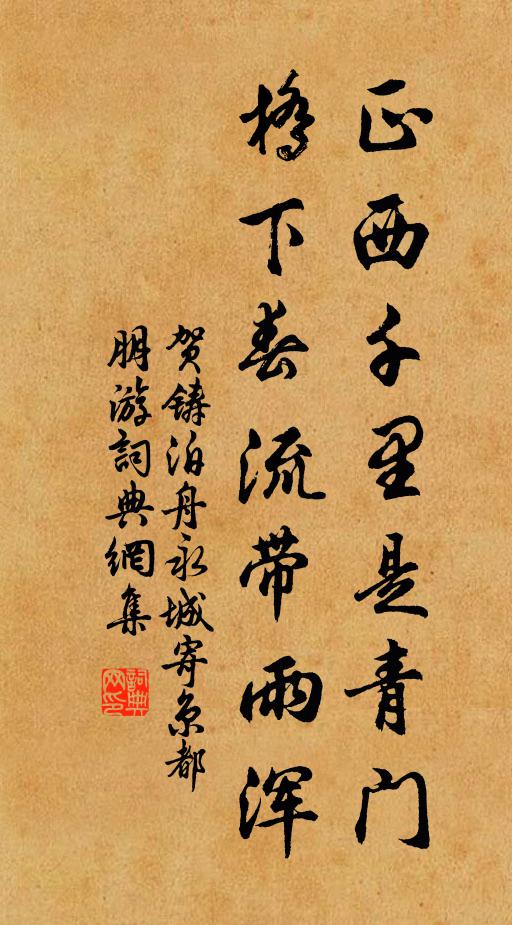 正西千里是青门
橋下春流带雨浑
贺铸泊舟永城寄京都
朋游詞典網集
詞典网印